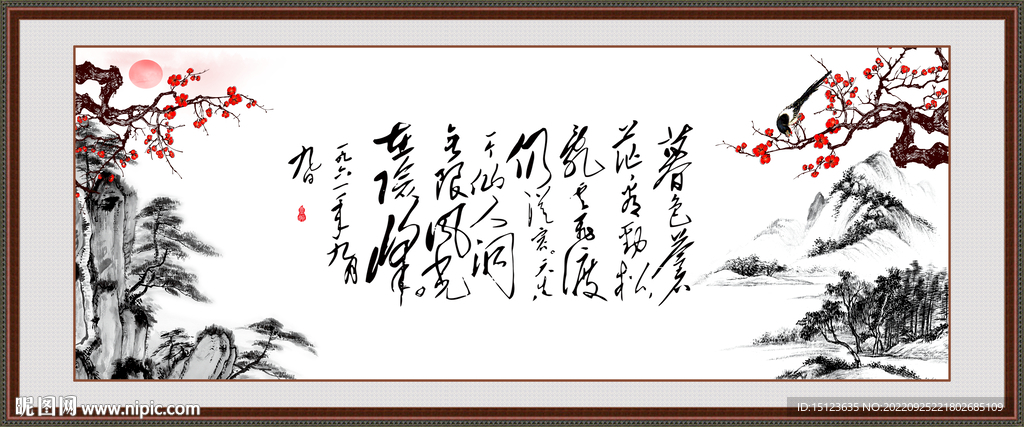 暮色蒼
茫看劲松,
乱云飛渡
仍從容。天生
一个仙人洞
无限風光
在險峰。
一九六一年九月
九日
昵图网 www.nipic.com
ID:15123635 NO:20220925221802685109